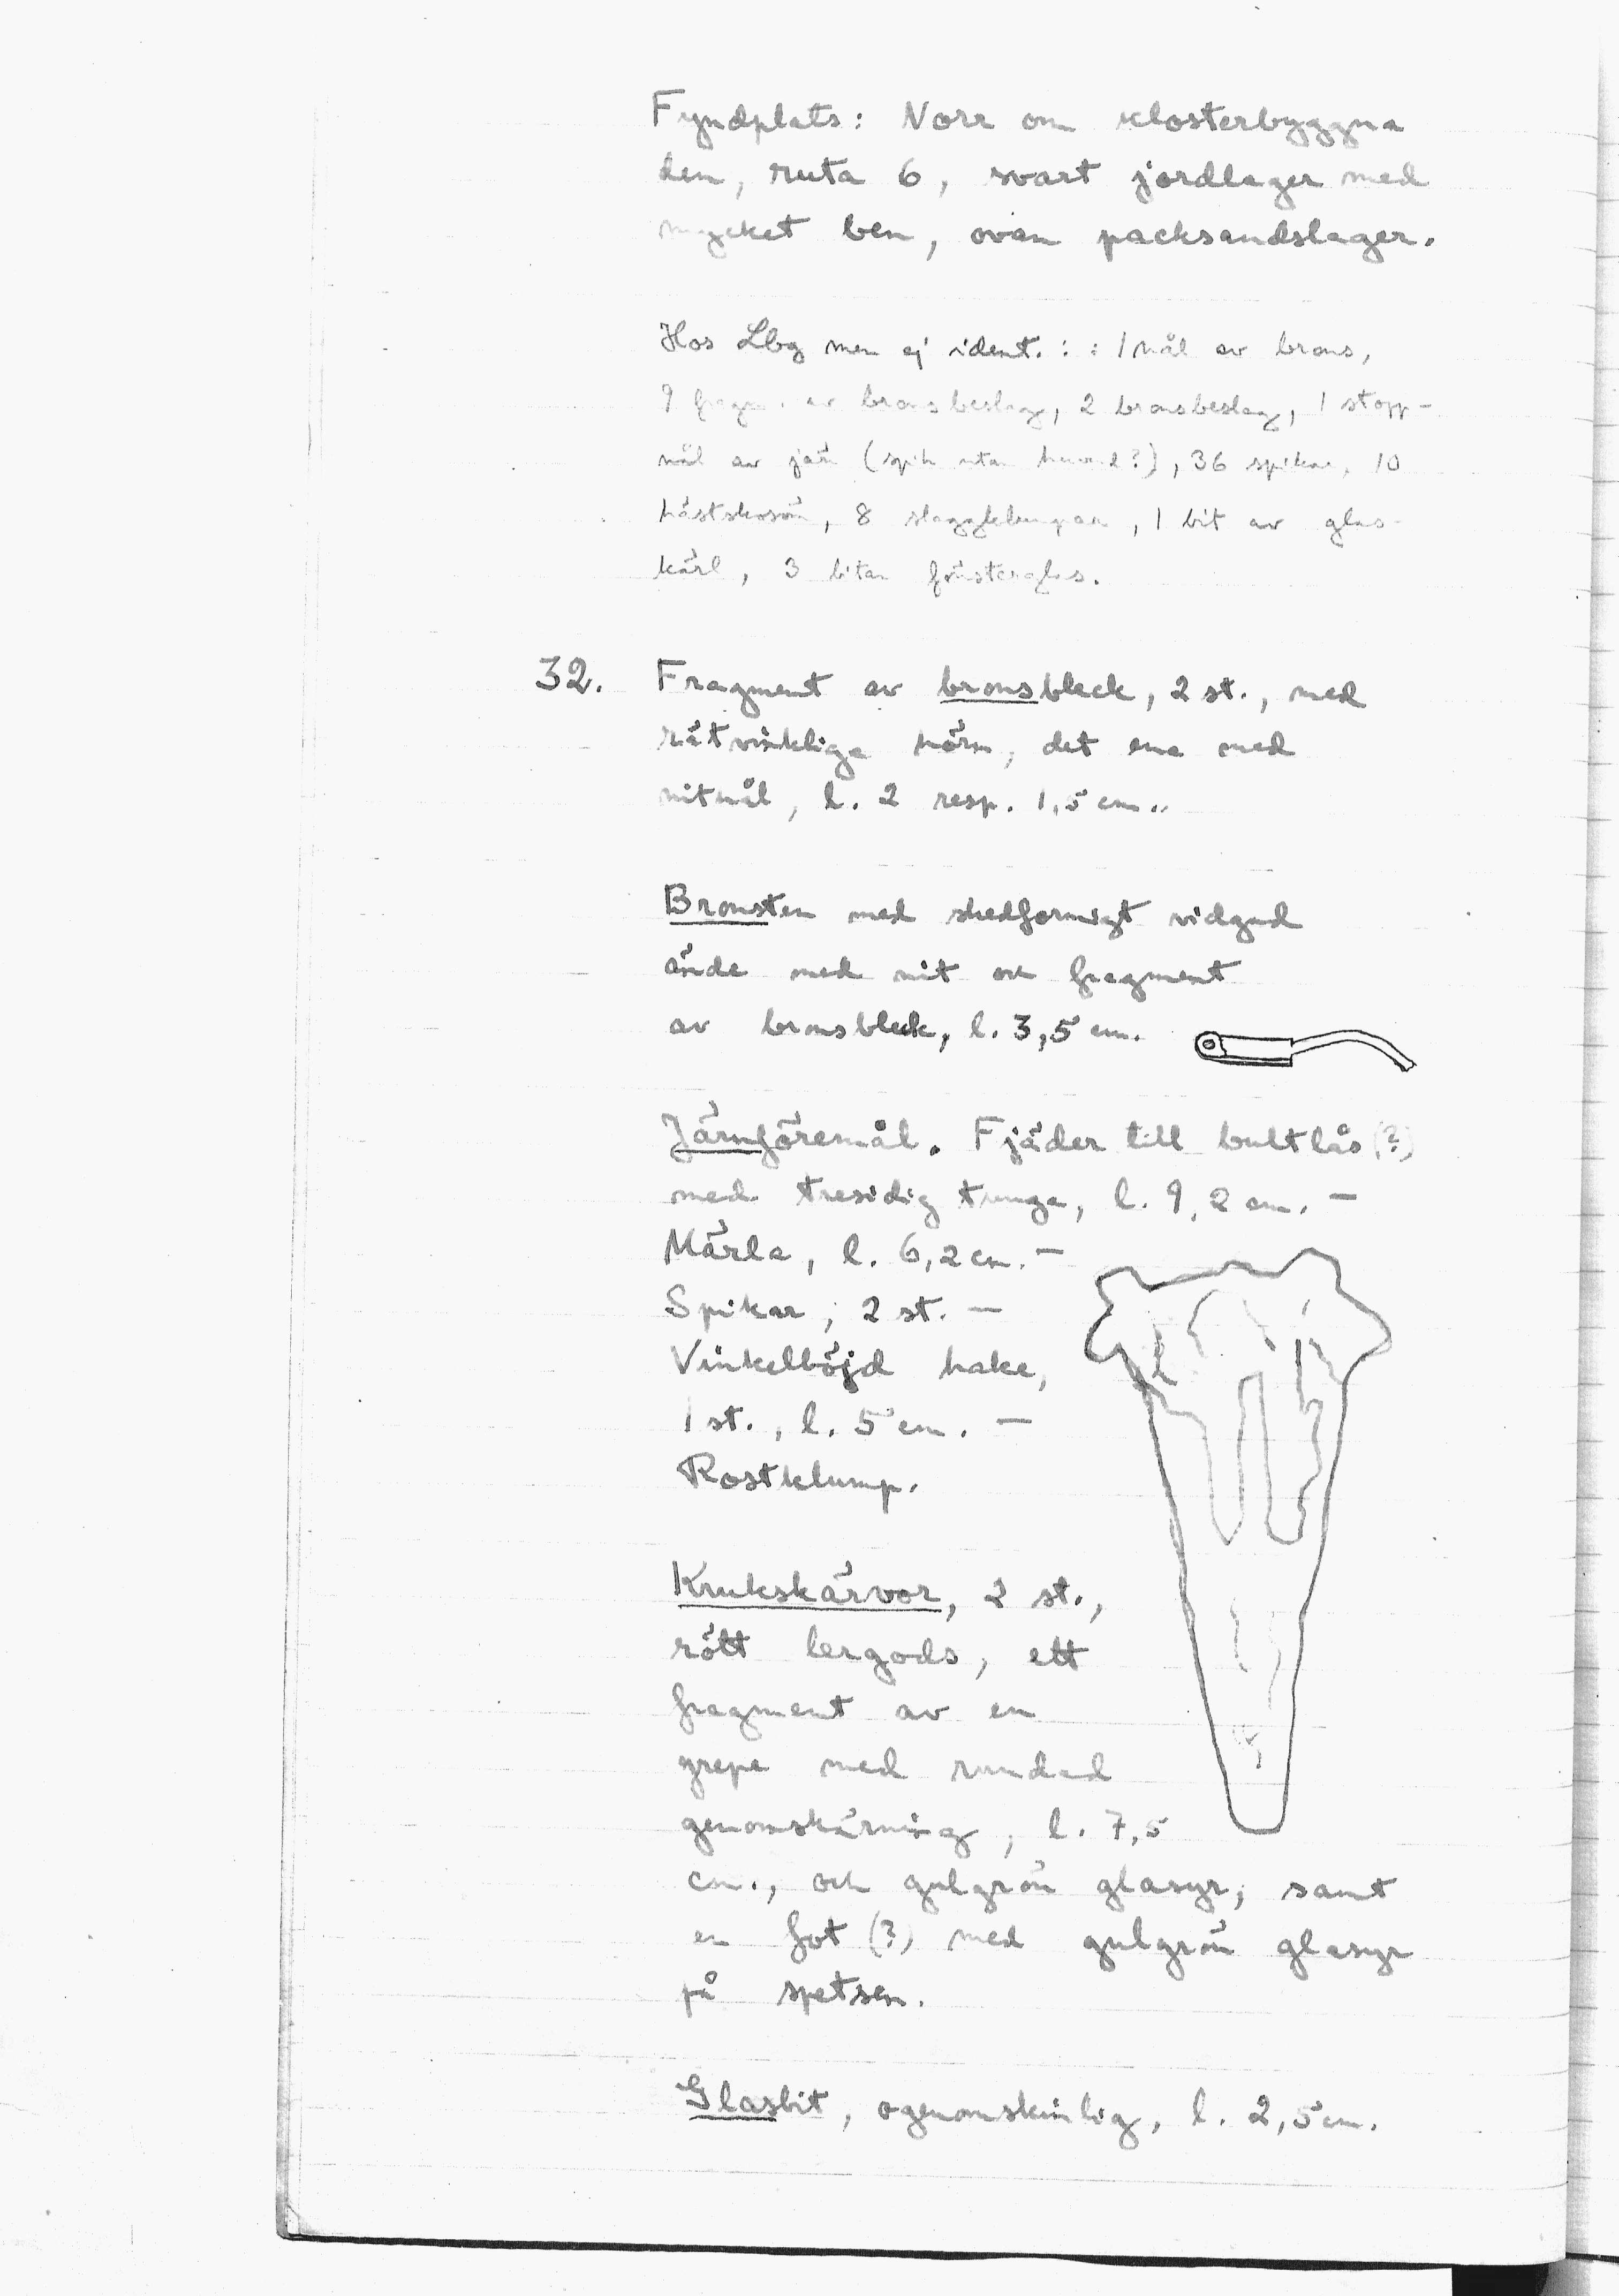 Fyndplats: Norr om klosterbyggna
den, ruta 6, svart jordlager med
mycket ben, ovan packsandslager.
Hos Lbg men ej ident. : : 1 nål av brons,
9 fragm. av bronsbeslag, 2 bronsbeslag, 1 stopp-
nål av järn (spik utan huvud?), 36 spikar, 10
hästskosöm, 8 slaggklumpar, 1 bit av glas-
kärl, 3 bitar fönsterglas.
32. Fragment av bronsbleck, 2 st., med
rätvinkliga hörn, det ena med
nithål, l. 2 resp. 1,5 cm..
Bronsten med skedformigt vidgad
ände med nit och fragment
av bronsbleck, l. 3,5 cm.
Järnföremål. Fjäder till bultlås (?)
med tresidig tunga, l. 9,2 cm. —
Märla, l. 6,2 cm. —
Spikar, 2 st. —
Vinkelböjd hake,
1 st., l. 5 cm. —
Rostklump.
Krukskärvor, 2 st.,
rött lergods, ett
fragment av en
grepe med rundad
genomskärning, l. 7,5
cm., och gulgrön glasyr, samt
en fot (?) med gulgrön glasyr
på spetsen.
Glasbit, ogenomskinlig, l. 2,5 cm.